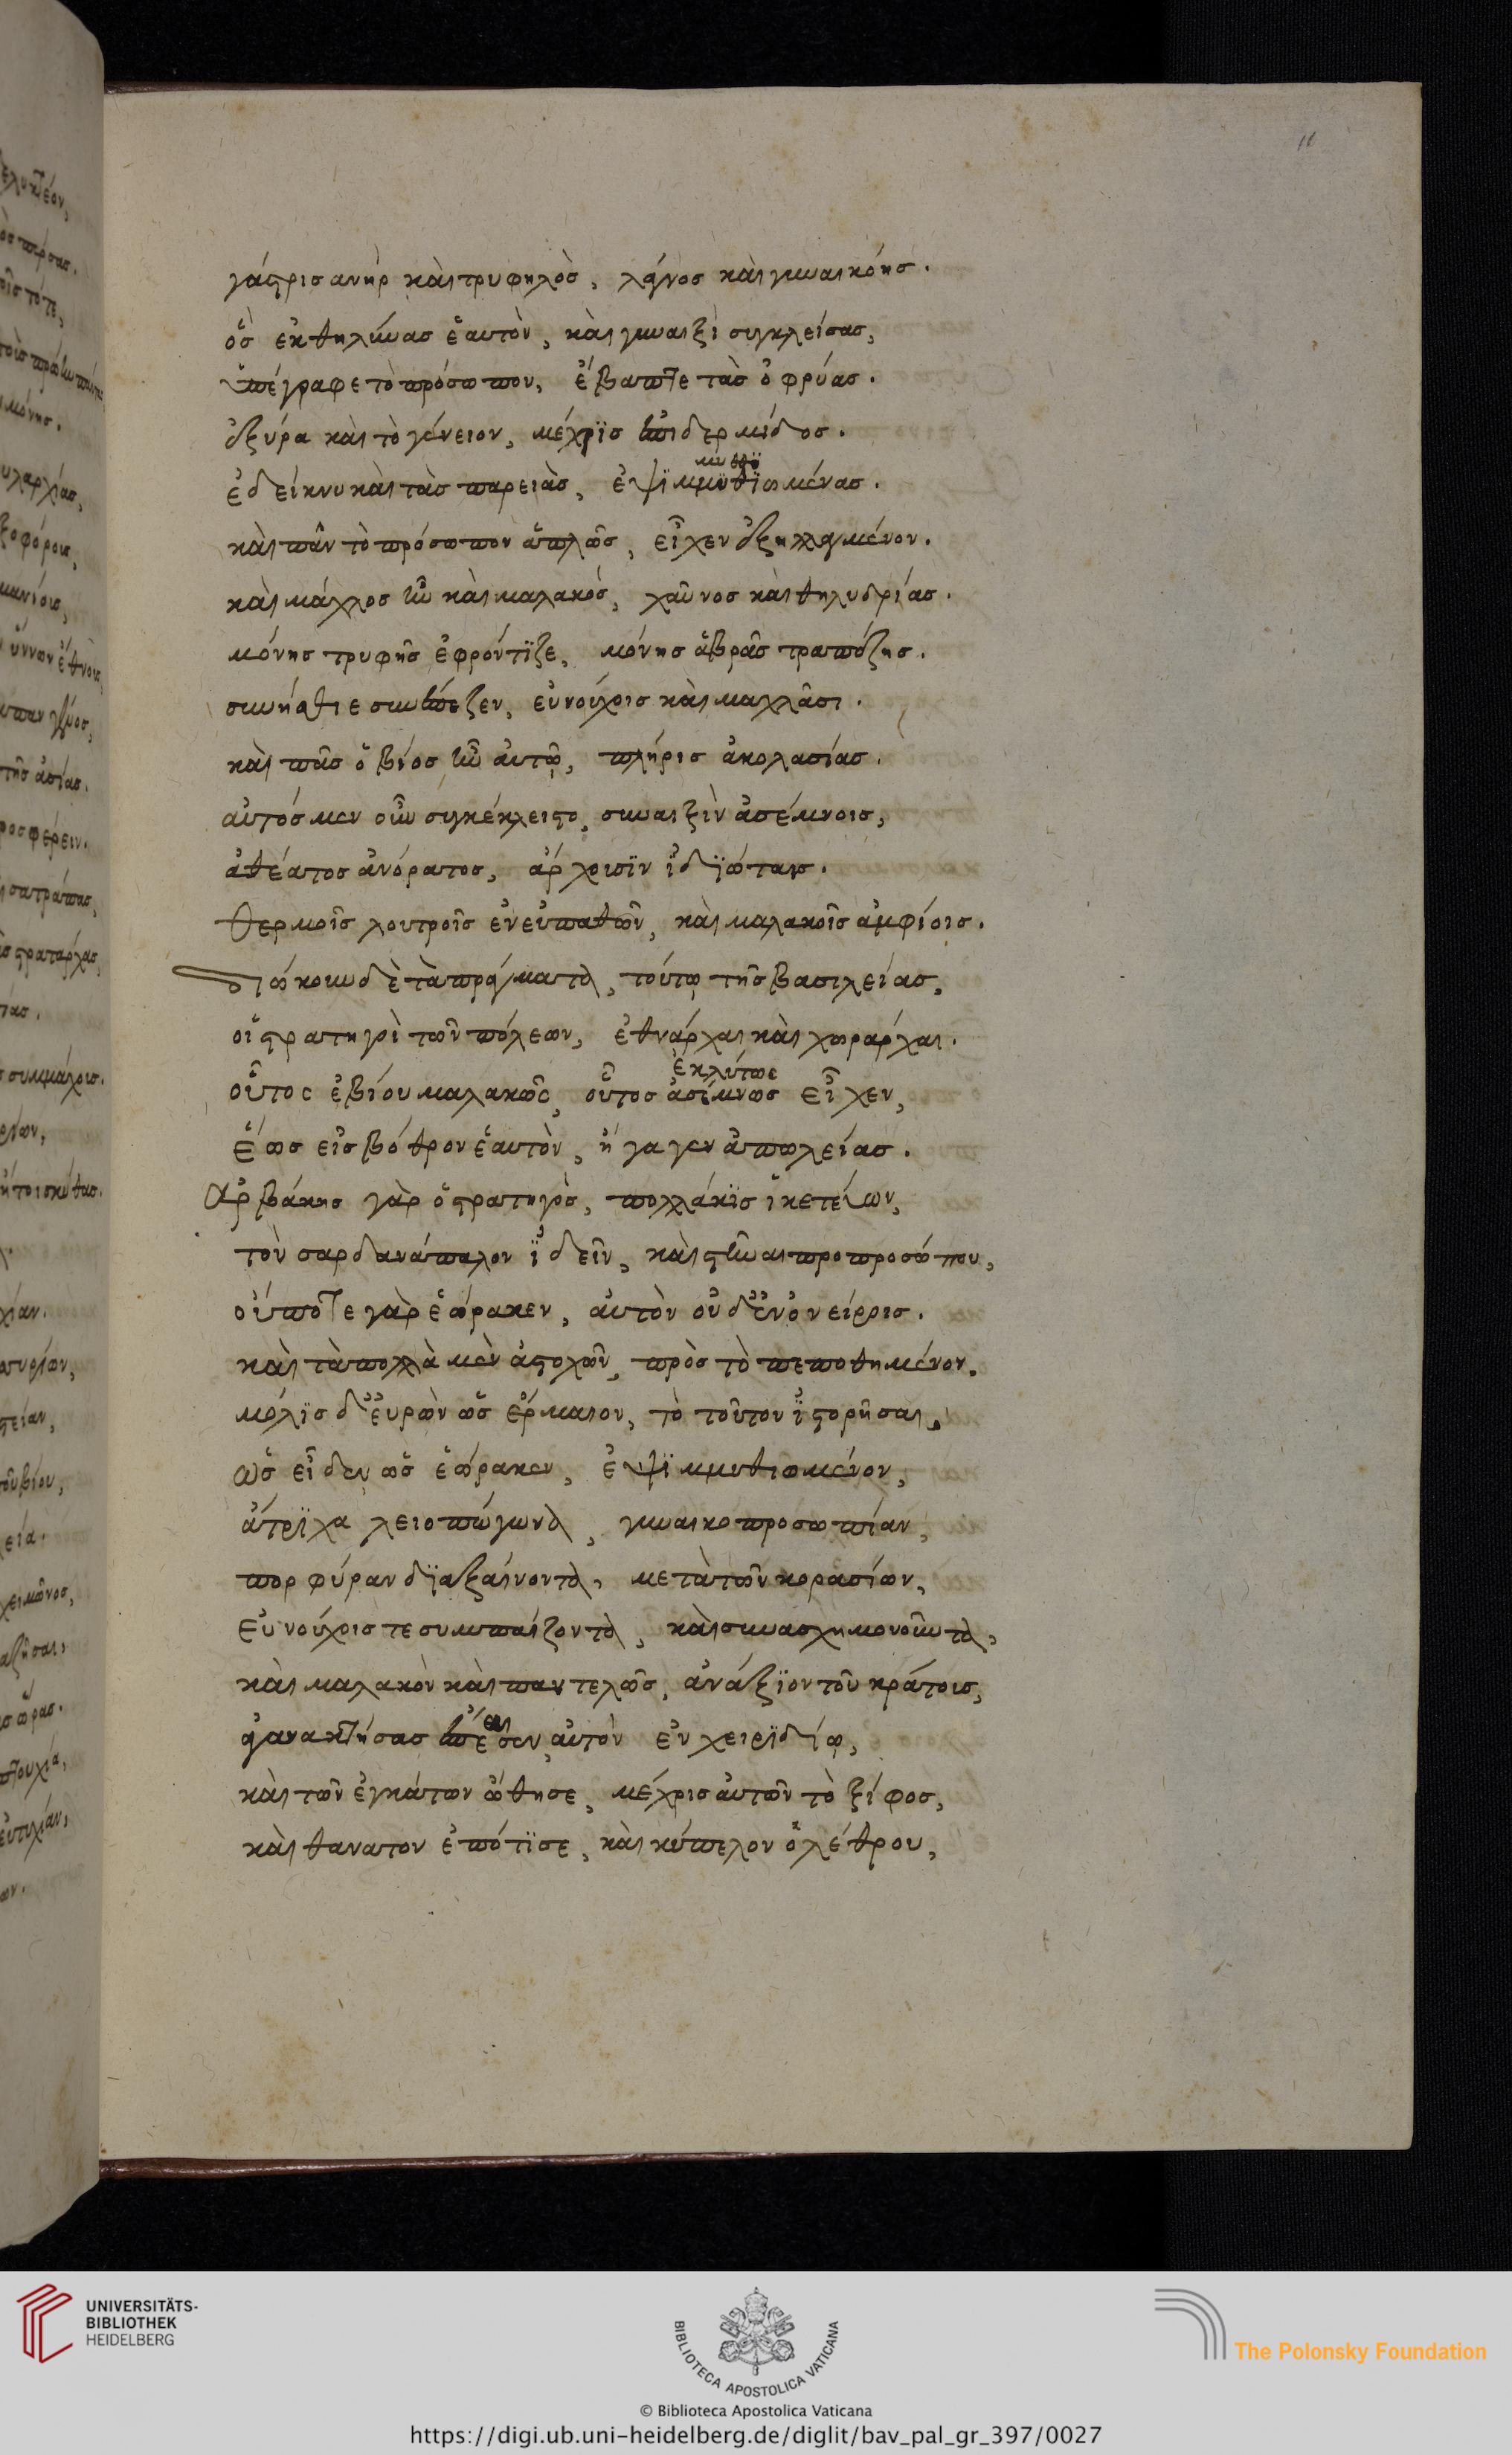 11
γάστρισ ανὴρ καὶ τρυφηλὸσ, λάγνοσ καὶ γυναικόησ.
ὃσ εκθηλύνασ ἑαυτὸν, καὶ γυναιξὶ συγκλείσασ,
ὑπέγραφε τὸ πρόσωπον, ἔβαπτε τὰσ ὀφρύασ.
ἐξύρα καὶ τὸ γένειον, μέχρϊσ ἐπιδερμίδοσ.
ἐδείκνυ καὶ τὰσ παρειὰσ, ἐψϊμμϋθϊωμένασ.
καὶ πᾶν τὸ πρόσωπον ἁπλῶσ, εἶχεν ἐξηλλαγμένον.
καὶ μάχλοσ ἦν καὶ μαλακόσ, χαῦνοσ καὶ θηλυδρίασ.
μόνησ τρυφῆσ ἐφρόντϊζε, μόνησ ἁβρᾶσ τραπέζησ.
συνήσθιε συνέπαιζεν, εὐνούχοισ καὶ μαχλᾶσι.
καὶ πᾶσ ὁ βίοσ ἦν αὐτῶ, πλήρισ ἀκολασίασ.
αὐτόσ μεν οὖν συγκέκλειστο, συναιξὶν ἀσέμνοισ,
ἀθέατοσ ἀνόρατοσ, ἀρχουσϊν ϊδϊώταισ.
θερμοῖσ λουτροῖσ ἐνευπαθῶν, καὶ μαλακοῖσ ἀμφίοισ.
διώκουν δὲ τὰ πράγματα, τούτω τῆσ βασιλείασ,
οἱ στρατηγοὶ τῶν πόλεων, ἐθνάρχαι καὶ χωραρχαι.
ἐκλύτωσ
οὗτοσ ἐβίου μαλακῶσ, οὗτοσ ἀσέμνωσ εἶχεν,
ἕωσ εἰσ βόθρον ἑαυτὸν, ἤγαγεν ἀπωλείασ.
Αρβάκησ γὰρ ὁ στρατηγὸσ, πολλάκϊσ ἱκετεύων,
τὸν σαρδανάπαλον ϊδεῖν, καὶ στῆναι προ προσώπου,
οὔποτε γὰρ ἑώρακεν, αὐτὸν οὐδ' ἐν ὀνείροισ.
καὶ τὰ πολλὰ μὲν ἀστοχῶν, πρὸσ τὸ πεποθημένον.
μόλϊσ δ' εὑρὼν ὡσ ἕρμαιον, τὸ τοῦτον ϊστορῆσαι,
ὡσ εἶδεν ὡσ ἑώρακεν, ἐψϊμμυθιωμένον,
ἄτρϊχα λειοπώγωνα, γυναικοπροσωπίαν,
πορφύραν δϊαξαίνοντα, μετὰ τῶν κορασίων,
Εὐνούχοισ τε συμπαίζοντα, καὶ συνασχημονοῦντα,
καὶ μαλακὸν καὶ παντελῶσ, ἀνάξϊον τοῦ κράτουσ,
ἀγανακτήσασ ἔπαισεν αὐτὸν ἐν χειρϊδίω,
καὶ τῶν ἐγκάτων ὤθησε, μέχρισ αὐτῶν τὸ ξίφοσ,
καὶ θανατον ἐπότϊσε, καὶ κύπελον ὀλέθρου,
UNIVERSITÄTS-
BIBLIOTHEK
HEIDELBERG
BIBLIOTECA APOSTOLICA VATICANA
© Biblioteca Apostolica Vaticana
The Polonsky Foundation
https://digi.ub.uni-heidelberg.de/diglit/bav_pal_gr_397/0027